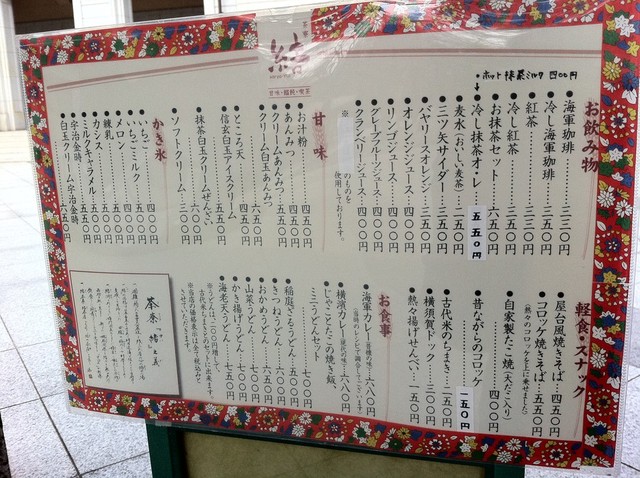 茶寮
甘味・麺軽・喫茶
お飲み物
ホット抹茶ミルク 四〇〇円
●海軍珈琲……三三〇円
●冷し海軍珈琲……三五〇円
●紅茶……三三〇円
●冷し紅茶……三五〇円
●お抹茶セット……六五〇円
●冷し抹茶オ・レ 五五〇円
●麦水(おいしい麦茶)……二五〇円
●三ツ矢サイダー……三五〇円
●バヤリースオレンジ……三五〇円
●オレンジジュース……四〇〇円
●リンゴジュース……四〇〇円
●グレープフルーツジュース……四〇〇円
●クランベリージュース……四〇〇円
※
のものを使用しております。
甘味
●お汁粉……四五〇円
●あんみつ……四五〇円
●クリームあんみつ……五五〇円
●クリーム白玉あんみつ……六五〇円
●ところ天……四五〇円
●信玄白玉アイスクリーム……五五〇円
●抹茶白玉クリームぜんざい……六五〇円
●ソフトクリーム……三〇〇円
かき氷
●いちご……四〇〇円
●いちごミルク……四五〇円
●メロン……四〇〇円
●練乳……四〇〇円
●カシス……五五〇円
●ミルクキャラメル……五五〇円
●宇治金時……五五〇円
●白玉クリーム宇治金時……六五〇円
軽食・スナック
●屋台風焼きそば……四五〇円
●コロッケ焼きそば……五五〇円
(熱々のコロッケを上に乗せました)
●自家製たこ焼(天だこ入り)……四〇〇円
●昔ながらのコロッケ 一五〇円
●古代米のちまき……二五〇円
●横須賀ドック……三〇〇円
●熱々揚げせんべい……一五〇円
お食事
●海軍カレー……六八〇円
●横濱カレー……六八〇円
●じゃことたこの焼き飯、ミニうどんセット……七〇〇円
●稲庭ざるうどん……五〇〇円
●きつねうどん……六〇〇円
●おかめうどん……六五〇円
●山菜うどん……七〇〇円
●かき揚げうどん……七〇〇円
●海老天うどん……七五〇円
※うどんは、二〇〇円増しで、古代米ちまきとのセットに出来ます。
※当店の価格表示は全て税込みでさせていただきます。